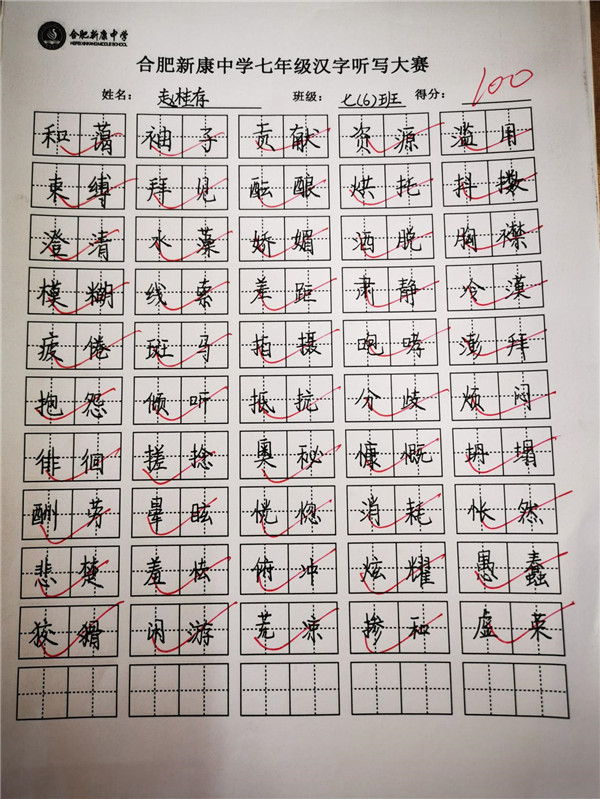 合肥新康中学
HEFEI XINKANG MIDDLE SCHOOL
合肥新康中学七年级汉字听写大赛
姓名：赵桂存 班级：七（6）班 得分：100
和蔼 袖子 贡献 资源 滥用
束缚 拜见 酝酿 烘托 抖擞
澄清 水藻 娇媚 洒脱 胸襟
模糊 线索 差距 肃静 冷漠
疲倦 斑马 拍摄 咆哮 澎拜
抱怨 倾听 抵抗 分歧 烦闷
徘徊 搓捻 奥秘 慷慨 坍塌
酬劳 晕眩 恍惚 消耗 怅然
悲楚 羞怯 俯冲 炫耀 愚蠢
狡猾 闲游 荒凉 掺和 虚荣